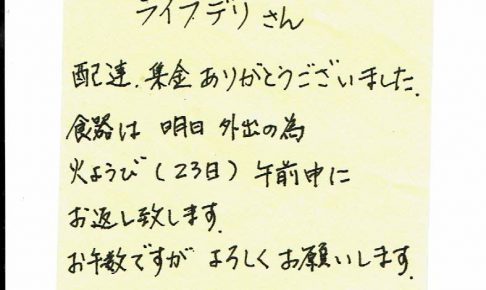 ライフデリさん
配達、集金ありがとうございました.
食器は 明日 外出の為
火ようび(23日)午前中に
お返し致します.
お手数ですが よろしくお願いします.